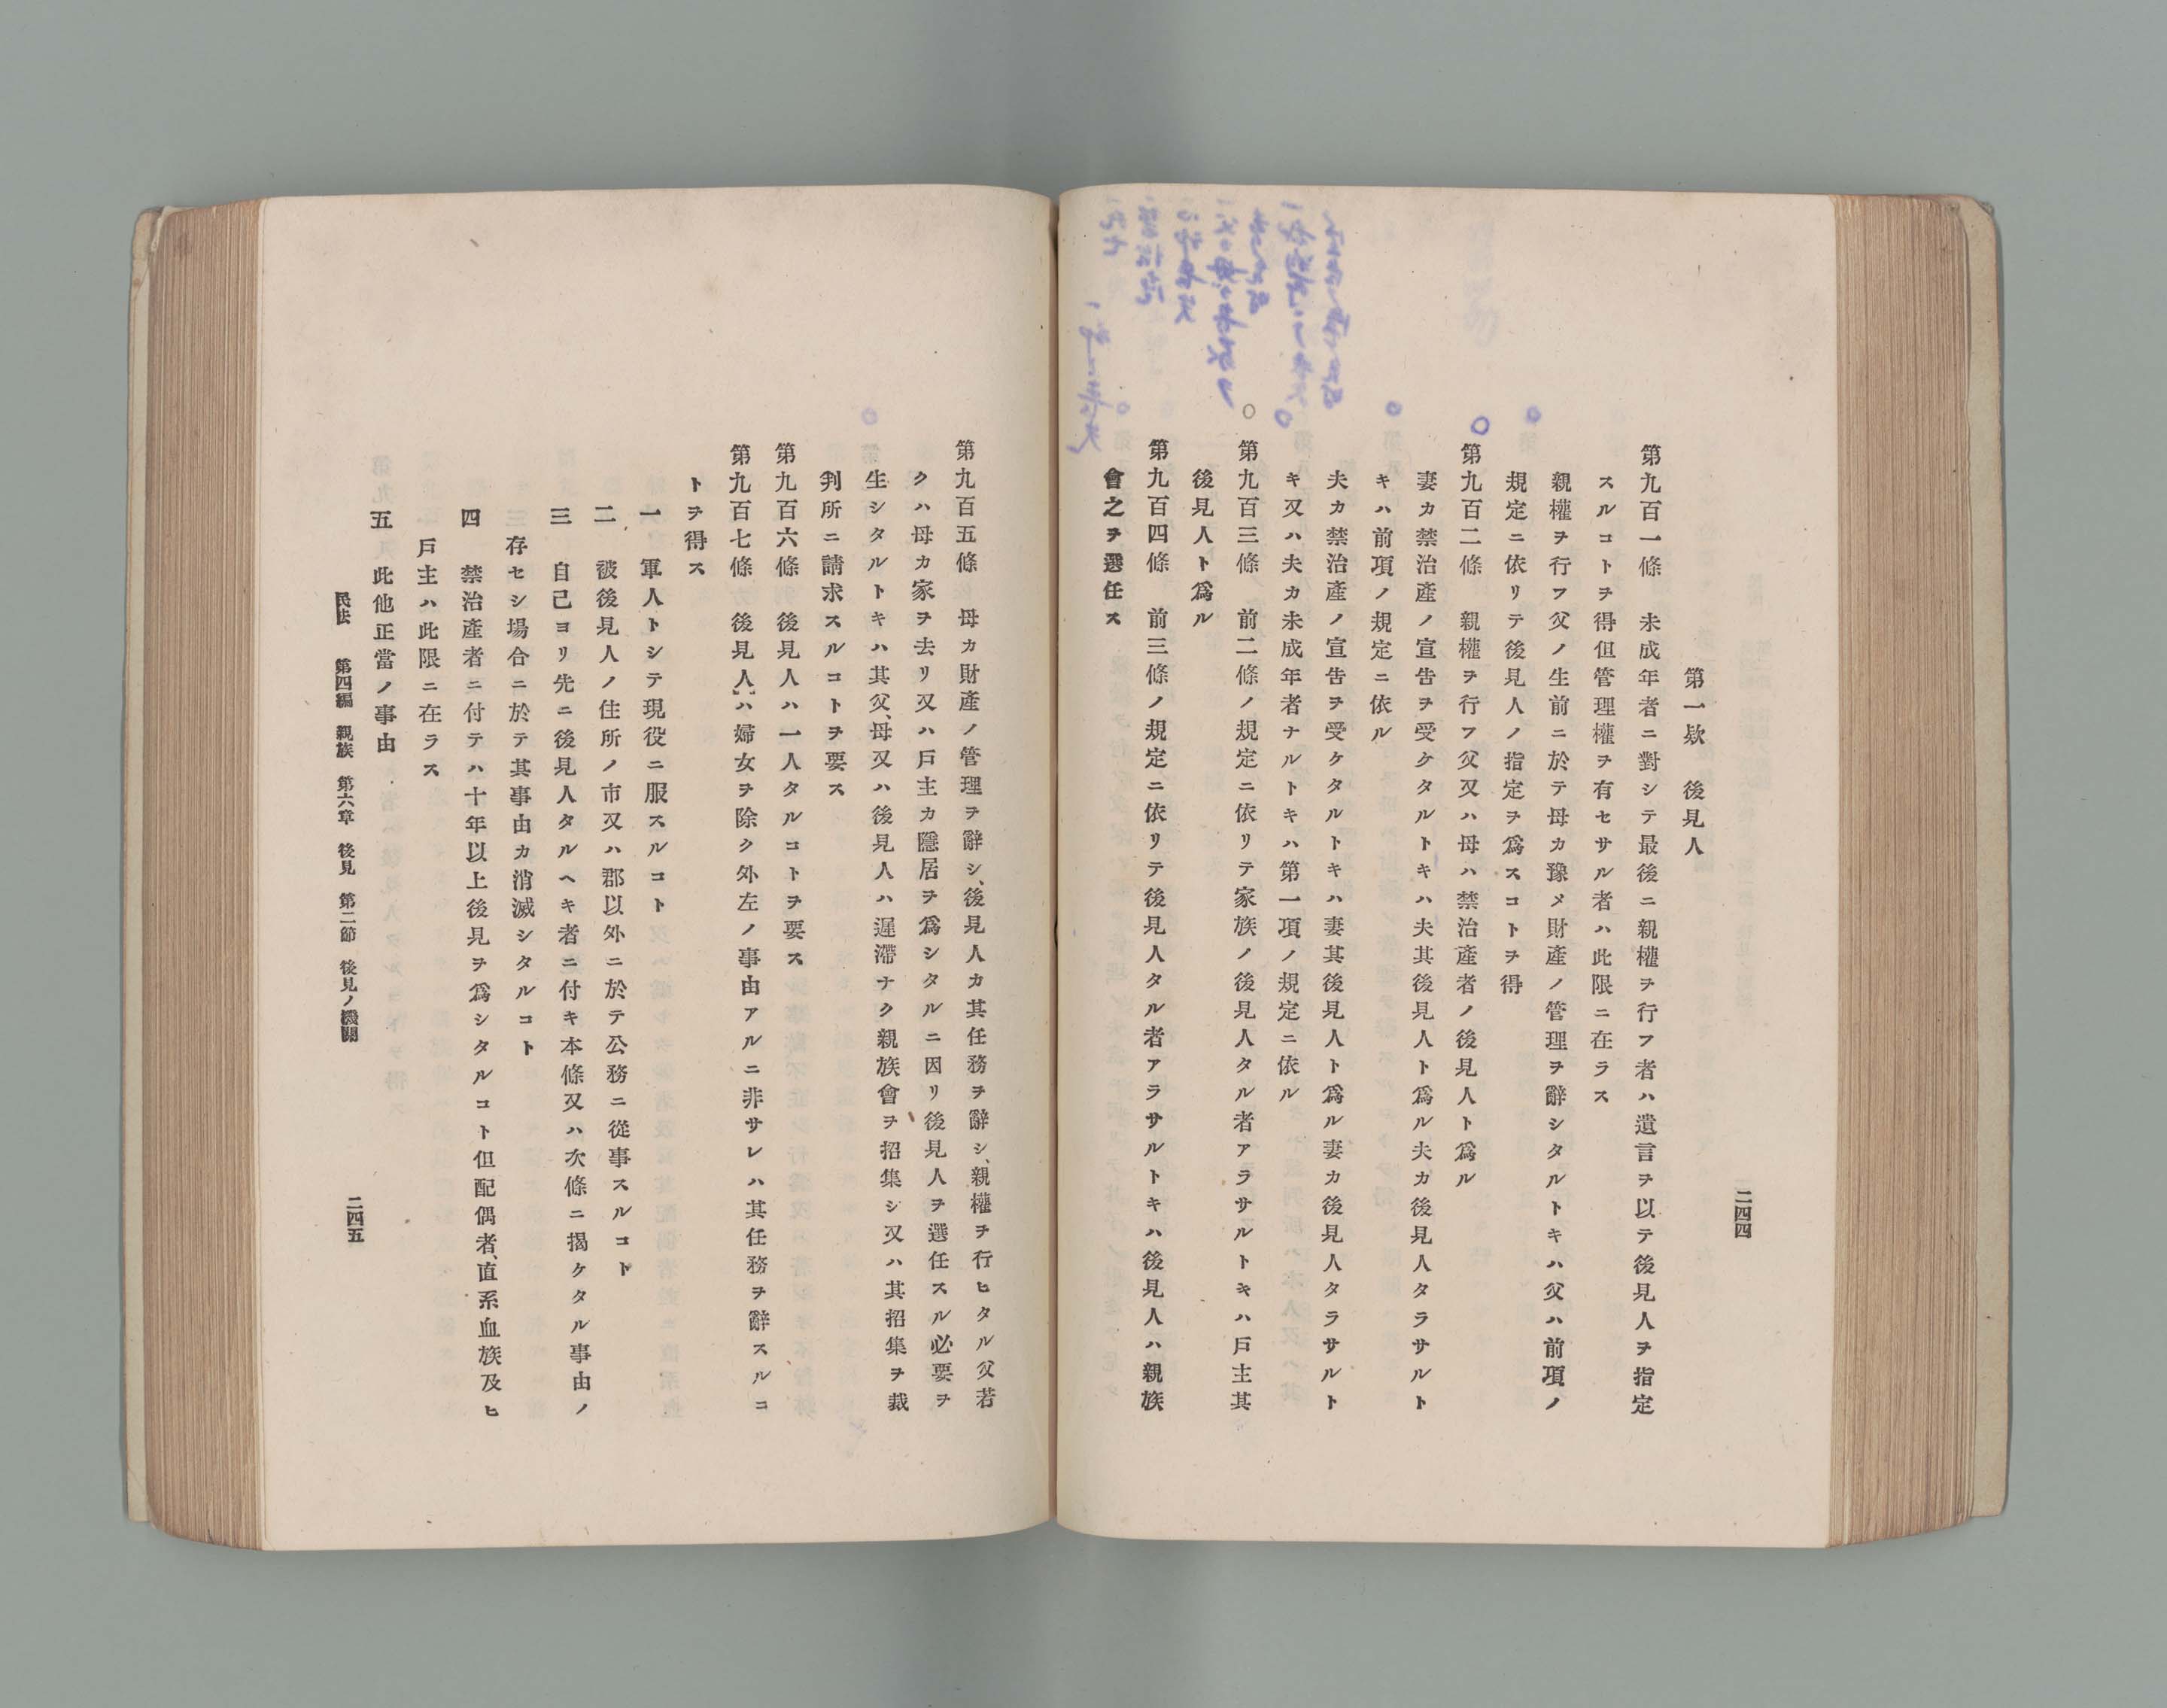 二四四
第一欵　後見人
第九百一條　未成年者ニ對シテ最後ニ親權ヲ行フ者ハ遺言ヲ以テ後見人ヲ指定
スルコトヲ得但管理權ヲ有セサル者ハ此限ニ在ラス
親權ヲ行フ父ノ生前ニ於テ母カ豫メ財產ノ管理ヲ辭シタルトキハ父ハ前項ノ
規定ニ依リテ後見人ノ指定ヲ爲スコトヲ得
第九百二條　親權ヲ行フ父又ハ母ハ禁治產者ノ後見人ト爲ル
妻カ禁治產ノ宣吿ヲ受ケタルトキハ夫其後見人ト爲ル夫カ後見人タラサルト
キハ前項ノ規定ニ依ル
夫カ禁治產ノ宣吿ヲ受ケタルトキハ妻其後見人ト爲ル妻カ後見人タラサルト
キ又ハ夫カ未成年者ナルトキハ第一項ノ規定ニ依ル
第九百三條　前二條ノ規定ニ依リテ家族ノ後見人タル者アラサルトキハ戶主其
後見人ト爲ル
第九百四條　前三條ノ規定ニ依リテ後見人タル者アラサルトキハ後見人ハ親族
會之ヲ選任ス
第九百五條　母カ財產ノ管理ヲ辭シ、後見人カ其任務ヲ辭シ、親權ヲ行ヒタル父若
クハ母カ家ヲ去リ又ハ戶主カ隱居ヲ爲シタルニ因リ後見人ヲ選任スル必要ヲ
生シタルトキハ其父、母又ハ後見人ハ遲滯ナク親族會ヲ招集シ又ハ其招集ヲ裁
判所ニ請求スルコトヲ要ス
第九百六條　後見人ハ一人タルコトヲ要ス
第九百七條　後見人ハ婦女ヲ除ク外左ノ事由アルニ非サレハ其任務ヲ辭スルコ
トヲ得ス
一　軍人トシテ現役ニ服スルコト
二　被後見人ノ住所ノ市又ハ郡以外ニ於テ公務ニ從事スルコト
三　自己ヨリ先ニ後見人タルヘキ者ニ付キ本條又ハ次條ニ揭ケタル事由ノ
存セシ場合ニ於テ其事由カ消滅シタルコト
四　禁治產者ニ付テハ十年以上後見ヲ爲シタルコト但配偶者、直系血族及ヒ
戶主ハ此限ニ在ラス
五　此他正當ノ事由
民法　第四編　親族　第六章　後見　第二節　後見ノ機關
二四五